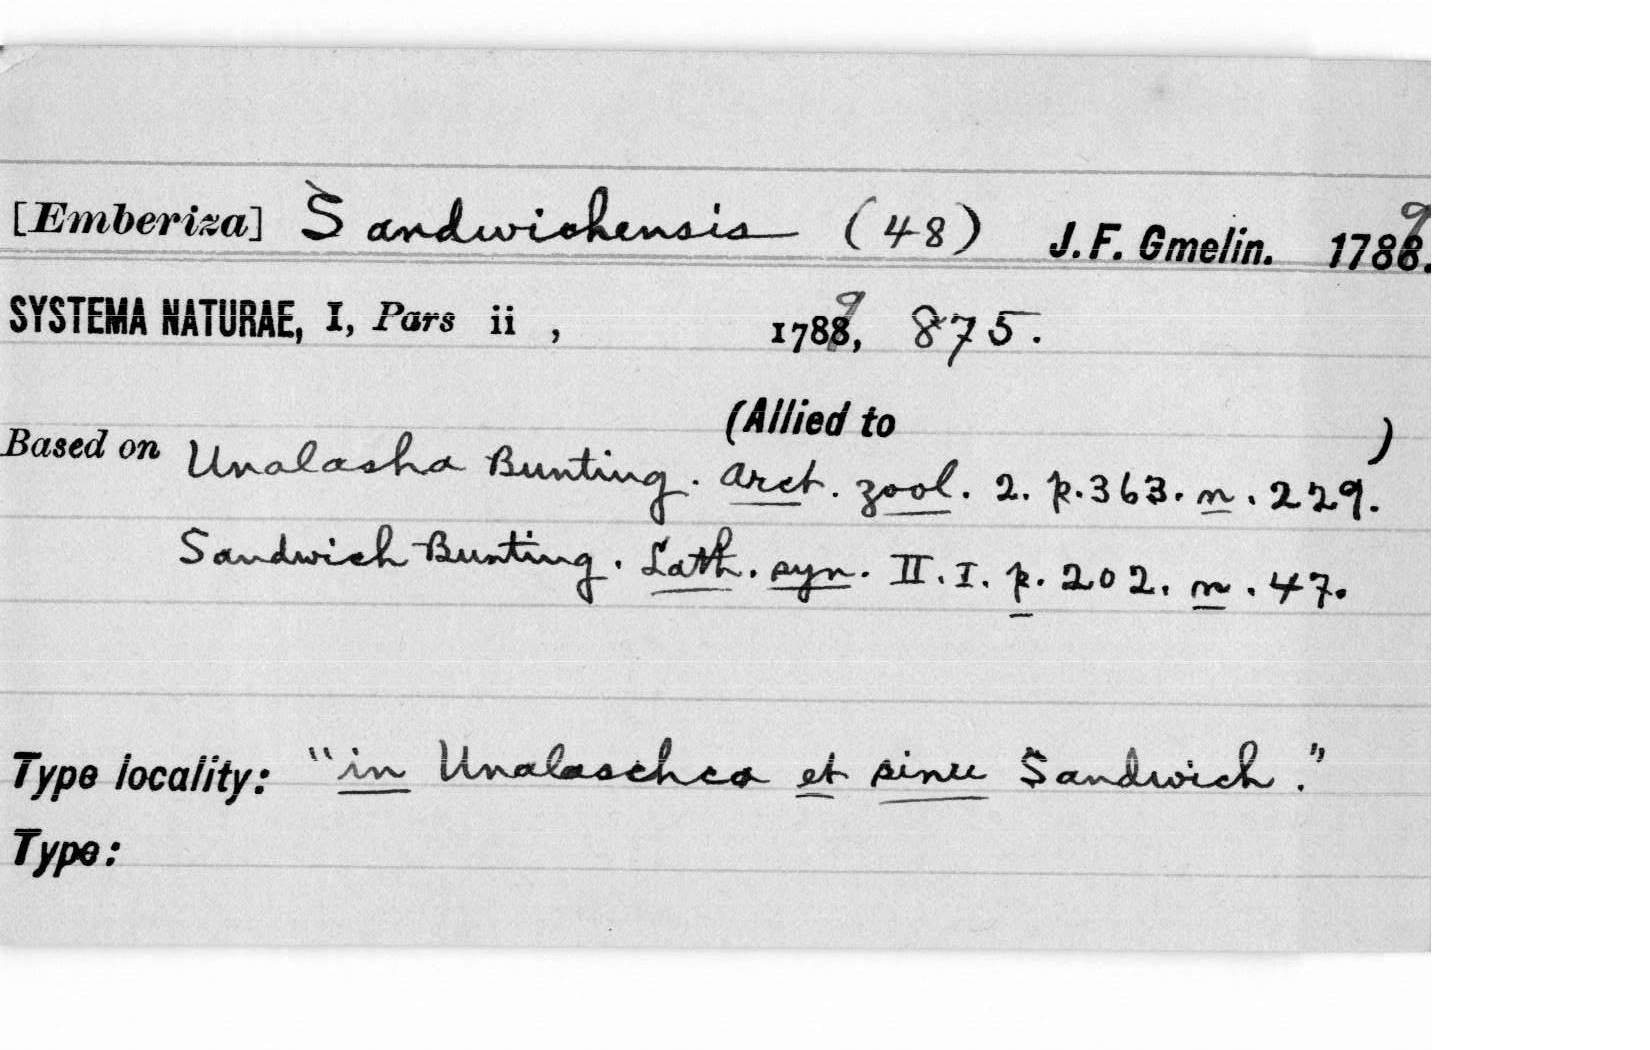 [Emberiza] Sandwichensis (48) J. F. Gmelin. 1789.
SYSTEMA NATURAE, I, Pars ii , 1789, 875.
(Allied to )
Based on Unalasha Bunting. Arct. zool. 2. p. 363. n. 229.
Sandwich Bunting. Lath. syn. II. I. p. 202. n. 47.
Type locality: "in Unalaschca et sinu Sandwich."
Type: